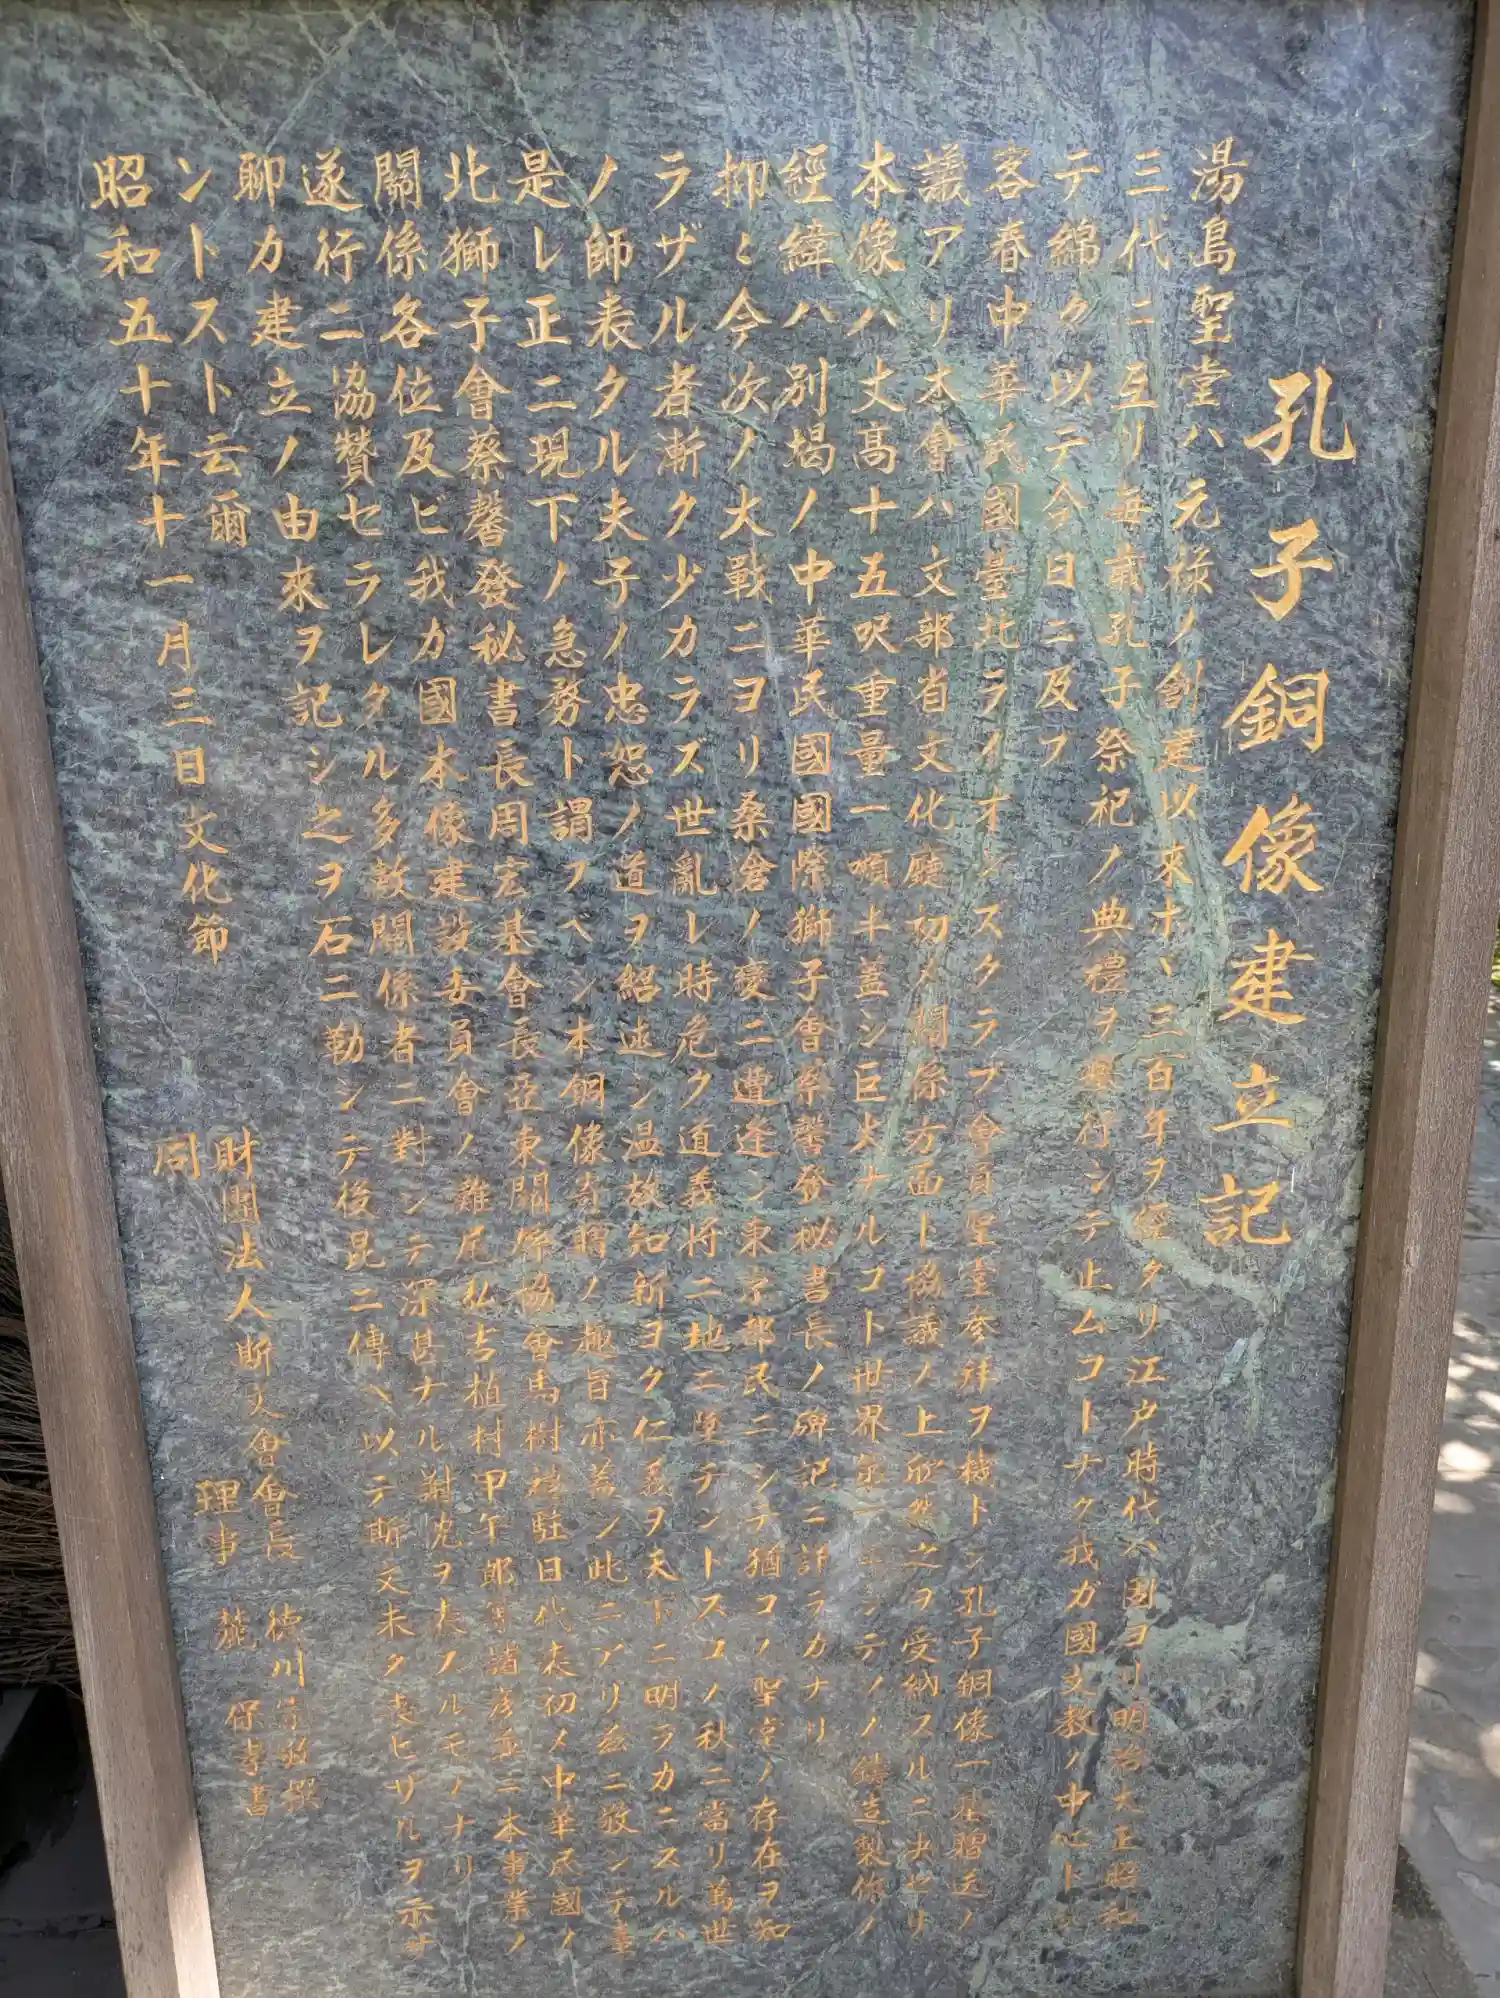 孔子銅像建立記
湯島聖堂ハ元祿ノ創建以來ホヾ三百年ヲ經タリ江戶時代ハ固ヨリ明治大正昭和
三代ニ亙リ每歲孔子祭祀ノ典禮ヲ擧行シテ止ムコトナク我ガ國文教ノ中心ト
テ綿々以テ今日ニ及フ
客春中華民國臺北ライオンスクラブ會員聖堂參拜ヲ機トシ孔子銅像一基贈送ノ
議アリ本會ハ文部省文化廳初メ關係方面ト協議ノ上欣然之ヲ受納スルニ決セリ
本像ハ丈高十五呎重量一噸半蓋シ巨大ナルコト世界第一ニシテソノ鑄造製作ノ
經緯ハ別揭ノ中華民國國際獅子會蔡馨發秘書長ノ碑記ニ詳ラカナリ
抑〻今次ノ大戰ニヨリ桑倉ノ變ニ遭逢シ東京都民ニシテ猶コノ聖堂ノ存在ヲ知
ラザル者漸ク少カラズ世亂レ時危ク道義將ニ地ニ墮テントスコノ秋ニ當リ萬世
ノ師表タル夫子ノ忠恕ノ道ヲ紹述シ温故知新ヨク仁義ヲ天下ニ明ラカニスルハ
是レ正ニ現下ノ急務ト謂フベシ本銅像寄贈ノ趣旨亦蓋シ此ニアリ茲ニ敬シテ臺
北獅子會蔡馨發秘書長周宏基會長亞東關係協會馬樹禮駐日代表初メ中華民國ノ
關係各位及ビ我ガ國本像建設委員會ノ難尾弘吉植村甲午郎等諸彥並ニ本事業ノ
遂行ニ協贊セラレタル多數關係者ニ對シテ深甚ナル謝意ヲ表スルモノナリ
聊カ建立ノ由來ヲ記シ之ヲ石ニ勒シテ後昆ニ傳ヘ以テ斯文未タ喪ヒザルヲ示サ
ントスト云爾
昭和五十年十一月三日文化節
財團法人斯文會會長 德川宗敬撰
同 理事 麓 保孝書